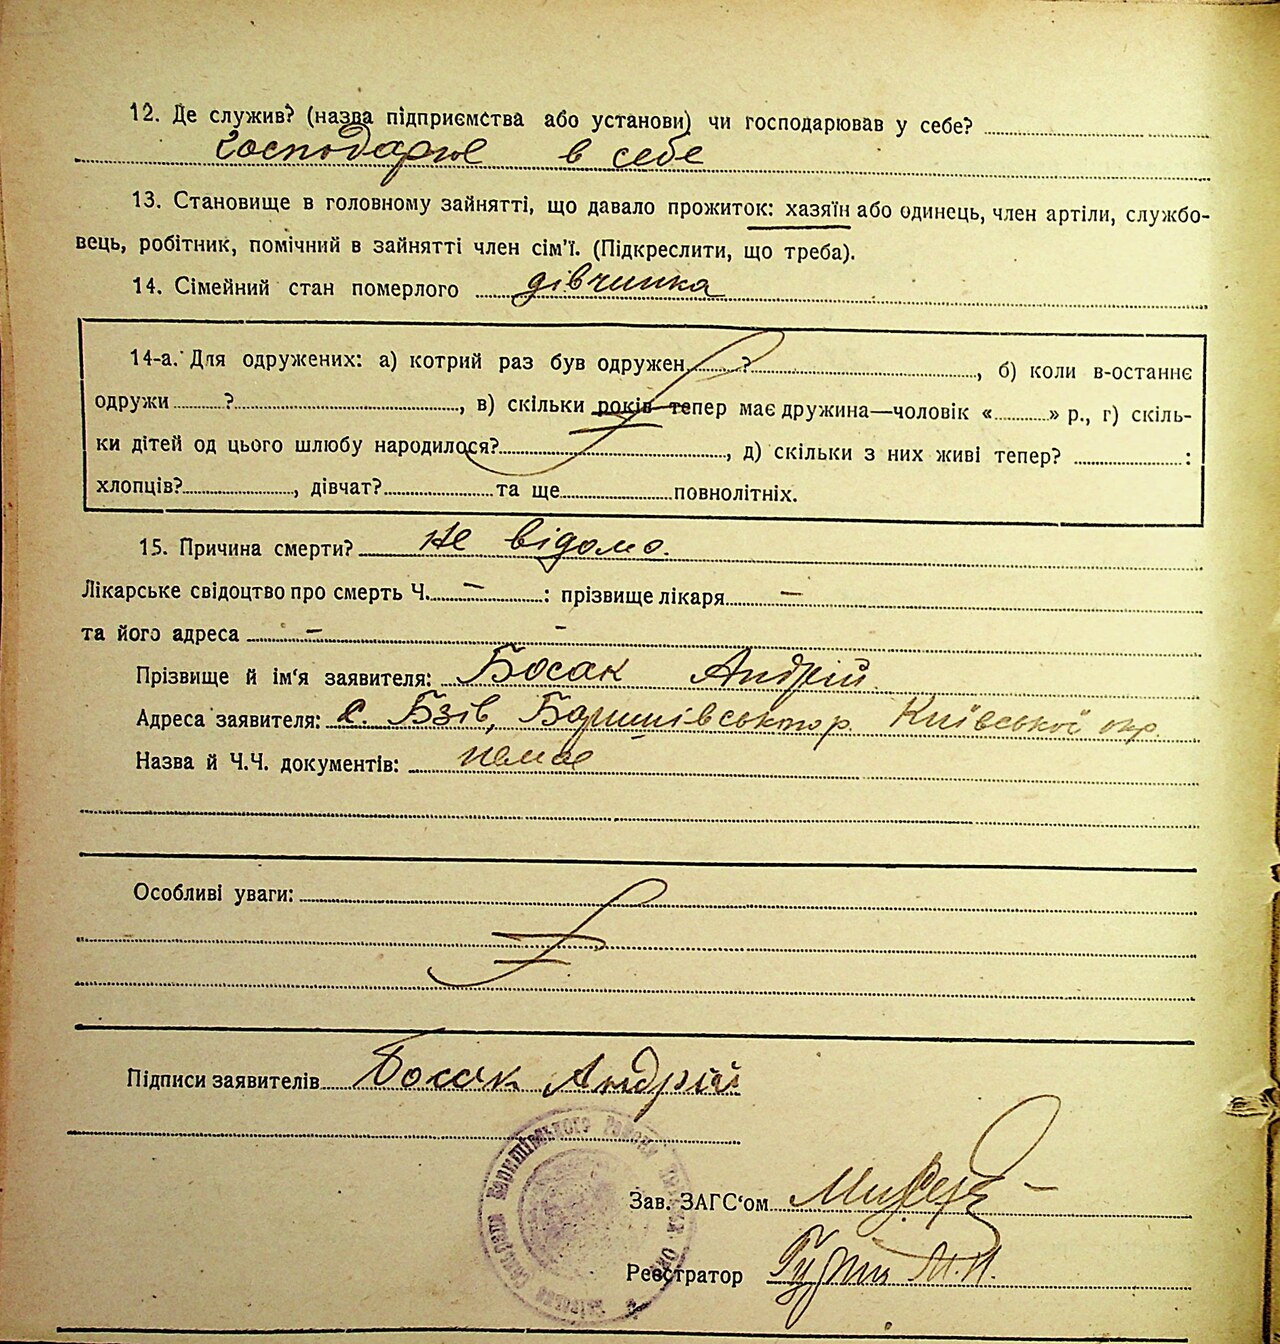 12. Де служив? (назва підприємства або установи) чи господарював у себе?
господарює в себе
13. Становище в головному зайнятті, що давало прожиток: хазяїн або одинець, член артіли, службо-
вець, робітник, помічний в зайнятті член сім'ї. (Підкреслити, що треба).
14. Сімейний стан померлого дівчинка
14-а. Для одружених: а) котрий раз був одружен ? , б) коли в-останнє
одружи ? , в) скільки років тепер має дружина—чоловік « » р., г) скіль-
ки дітей од цього шлюбу народилося? , д) скільки з них живі тепер? :
хлопців? , дівчат? та ще повнолітніх.
15. Причина смерти? Не відомо.
Лікарське свідоцтво про смерть Ч. – : прізвище лікаря –
та його адреса – –
Прізвище й ім'я заявителя: Босак Андрій
Адреса заявителя: с. Бзів, Баришівського р. Київської окр.
Назва й Ч.Ч. документів: немає
Особливі уваги:
Підписи заявителів Босак Андрій
Баришівського району
Зав. ЗАГС'ом
Реєстратор М.И.